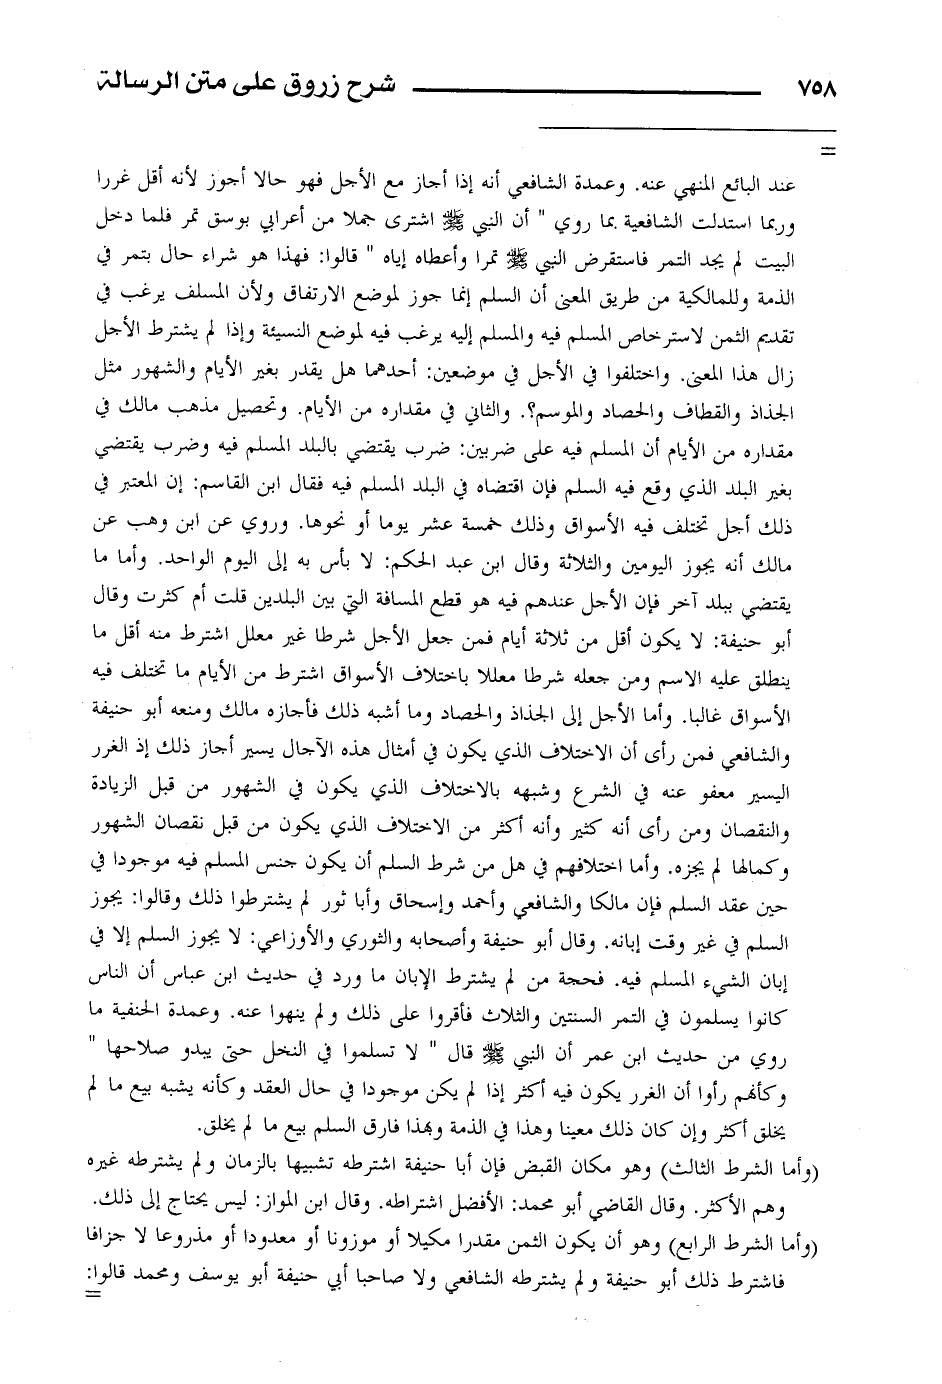 ٧٥٨ شرح زروق على متن الرسالة
=
عند البائع المنهي عنه. وعمدة الشافعي أنه إذا أجاز مع الأجل فهو حالا أجوز لأنه أقل غررا
وربما استدلت الشافعية بما روي " أن النبي ﷺ اشترى جملا من أعرابي بوسق تمر فلما دخل
البيت لم يجد التمر فاستقرض النبي ﷺ تمرا وأعطاه إياه " قالوا: فهذا هو شراء حال بتمر في
الذمة وللمالكية من طريق المعنى أن السلم إنما جوز لموضع الارتفاق ولأن المسلف يرغب في
تقديم الثمن لاسترخاص المسلم فيه والمسلم إليه يرغب فيه لموضع النسيئة وإذا لم يشترط الأجل
زال هذا المعنى. واختلفوا في الأجل في موضعين: أحدهما هل يقدر بغير الأيام والشهور مثل
الجذاذ والقطاف والحصاد والموسم؟. والثاني في مقداره من الأيام. وتحصيل مذهب مالك في
مقداره من الأيام أن المسلم فيه على ضربين: ضرب يقتضي بالبلد المسلم فيه وضرب يقتضي
بغير البلد الذي وقع فيه السلم فإن اقتضاه في البلد المسلم فيه فقال ابن القاسم: إن المعتبر في
ذلك أجل تختلف فيه الأسواق وذلك خمسة عشر يوما أو نحوها. وروي عن ابن وهب عن
مالك أنه يجوز اليومين والثلاثة وقال ابن عبد الحكم: لا بأس به إلى اليوم الواحد. وأما ما
يقتضي ببلد آخر فإن الأجل عندهم فيه هو قطع المسافة التي بين البلدين قلت أم كثرت وقال
أبو حنيفة: لا يكون أقل من ثلاثة أيام فمن جعل الأجل شرطا غير معلل اشترط منه أقل ما
ينطلق عليه الاسم ومن جعله شرطا معللا باختلاف الأسواق اشترط من الأيام ما تختلف فيه
الأسواق غالبا. وأما الأجل إلى الجذاذ والحصاد وما أشبه ذلك فأجازه مالك ومنعه أبو حنيفة
والشافعي فمن رأى أن الاختلاف الذي يكون في أمثال هذه الآجال يسير أجاز ذلك إذ الغرر
اليسير معفو عنه في الشرع وشبهه بالاختلاف الذي يكون في الشهور من قبل الزيادة
والنقصان ومن رأى أنه كثير وأنه أكثر من الاختلاف الذي يكون من قبل نقصان الشهور
وكمالها لم يجزه. وأما اختلافهم في هل من شرط السلم أن يكون جنس المسلم فيه موجودا في
حين عقد السلم فإن مالكا والشافعي وأحمد وإسحاق وأبا ثور لم يشترطوا ذلك وقالوا: يجوز
السلم في غير وقت إبانه. وقال أبو حنيفة وأصحابه والثوري والأوزاعي: لا يجوز السلم إلا في
إبان الشيء المسلم فيه. فحجة من لم يشترط الإبان ما ورد في حديث ابن عباس أن الناس
كانوا يسلمون في التمر السنتين والثلاث فأقروا على ذلك ولم ينهوا عنه. وعمدة الحنفية ما
روي من حديث ابن عمر أن النبي ﷺ قال " لا تسلموا في النخل حتى يبدو صلاحها "
وكأنهم رأوا أن الغرر يكون فيه أكثر إذا لم يكن موجودا في حال العقد وكأنه يشبه بيع ما لم
يخلق أكثر وإن كان ذلك معينا وهذا في الذمة وبهذا فارق السلم بيع ما لم يخلق.
(وأما الشرط الثالث) وهو مكان القبض فإن أبا حنيفة اشترطه تشبيها بالزمان ولم يشترطه غيره
وهم الأكثر. وقال القاضي أبو محمد: الأفضل اشتراطه. وقال ابن المواز: ليس يحتاج إلى ذلك.
(وأما الشرط الرابع) وهو أن يكون الثمن مقدرا مكيلا أو موزونا أو معدودا أو مذروعا لا جزافا
فاشترط ذلك أبو حنيفة ولم يشترطه الشافعي ولا صاحبا أبي حنيفة أبو يوسف ومحمد قالوا:
=